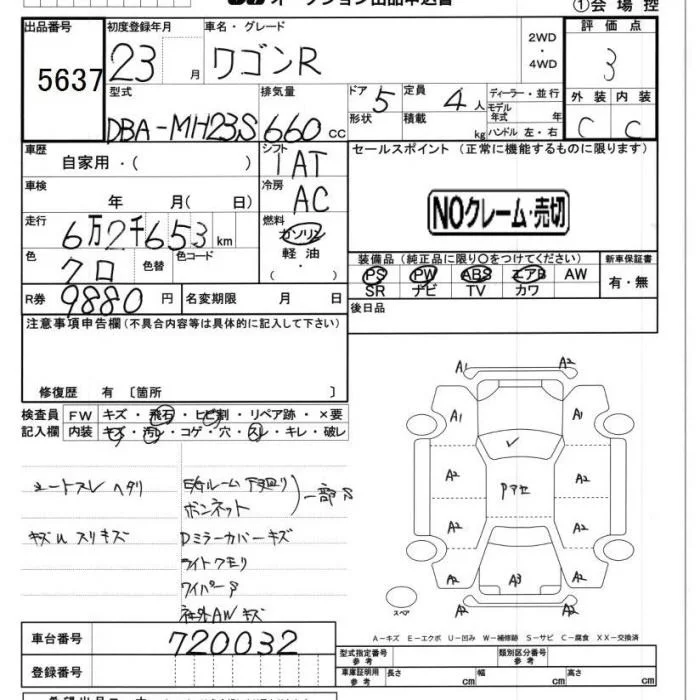 オークション出品申込書
①会場控
出品番号
5637
初度登録年月
23 月
車名・グレード
ワゴンR
2WD
4WD
評価点
3
型式
DBA-MH23S
排気量
660 cc
ドア
5
形状
定員
4人
積載
kg
ディーラー・並行
モデル
年式 年
ハンドル 左・右
外装 内装
C C
車歴
自家用・( )
シフト
IAT
車検
年 月( 日)
冷房
AC
走行
6万2千653km
燃料
ガソリン
軽油
( )
色
クロ
色替
色コード
R券
9880円
名変期限 月 日
セールスポイント(正常に機能するものに限ります)
NOクレーム・売切
装備品(純正品に限り○をつけてください)
PS PW ABS エアB AW
SR ナビ TV カワ
新車保証書
有・無
後日品
注意事項申告欄(不具合内容等は具体的に記入して下さい)
修復歴 有〔箇所 〕
検査員
記入欄
FW キズ・飛石・ヒビ割・リペア跡・×要
内装 キズ・汚れ・コゲ・穴・スレ・キレ・破レ
シートスレ ヘタリ
キズ スリキズ
E/Gルーム 下廻り
ボンネット
一部サ
Dミラーカバーキズ
ライトクモリ
ワイパーサ
社外AWキズ
A1 A2
A1 A1
A2 A2
Pアセ
A2 A2
A2 A3 A2
A2 A2
スペア
A-キズ E-エクボ U-凹み W-補修跡 S-サビ C-腐食 XX-交換済
車台番号
720032
登録番号
型式指定番号
参考
類別区分番号
参考
車庫証明用
参考
長さ cm
幅 cm
高さ cm